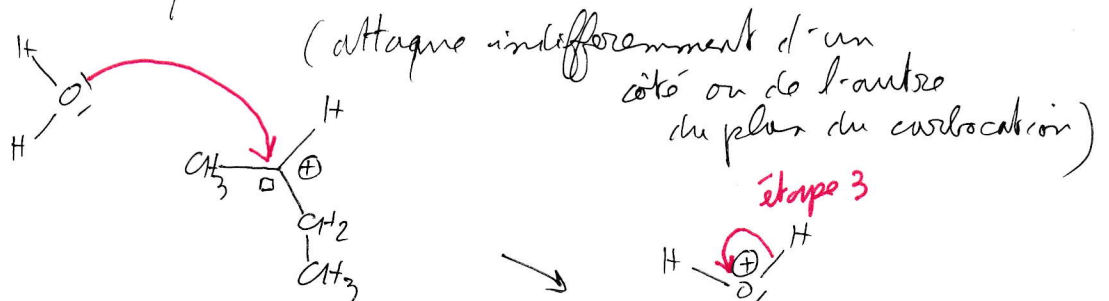 (attaque indifféremment d'un
côté ou de l'autre
du plan du carbocation)
H
O
H
H
CH3
⊕
CH2
CH3
étape 3
H
H
⊕
O